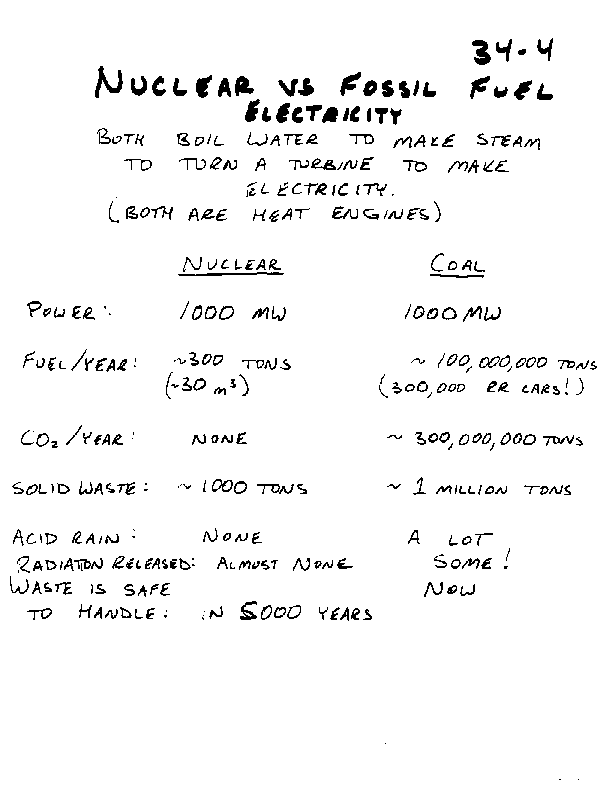 34-4
NUCLEAR VS FOSSIL FUEL
ELECTRICITY
BOTH BOIL WATER TO MAKE STEAM
TO TURN A TURBINE TO MAKE
ELECTRICITY.
(BOTH ARE HEAT ENGINES)
NUCLEAR COAL
POWER: 1000 MW 1000 MW
FUEL/YEAR: ~300 TONS ~ 100,000,000 TONS
(~30 m³) (300,000 RR CARS!)
CO₂/YEAR: NONE ~ 300,000,000 TONS
SOLID WASTE: ~ 1000 TONS ~ 1 MILLION TONS
ACID RAIN: NONE A LOT
RADIATION RELEASED: ALMOST NONE SOME!
WASTE IS SAFE NOW
TO HANDLE: IN 5000 YEARS